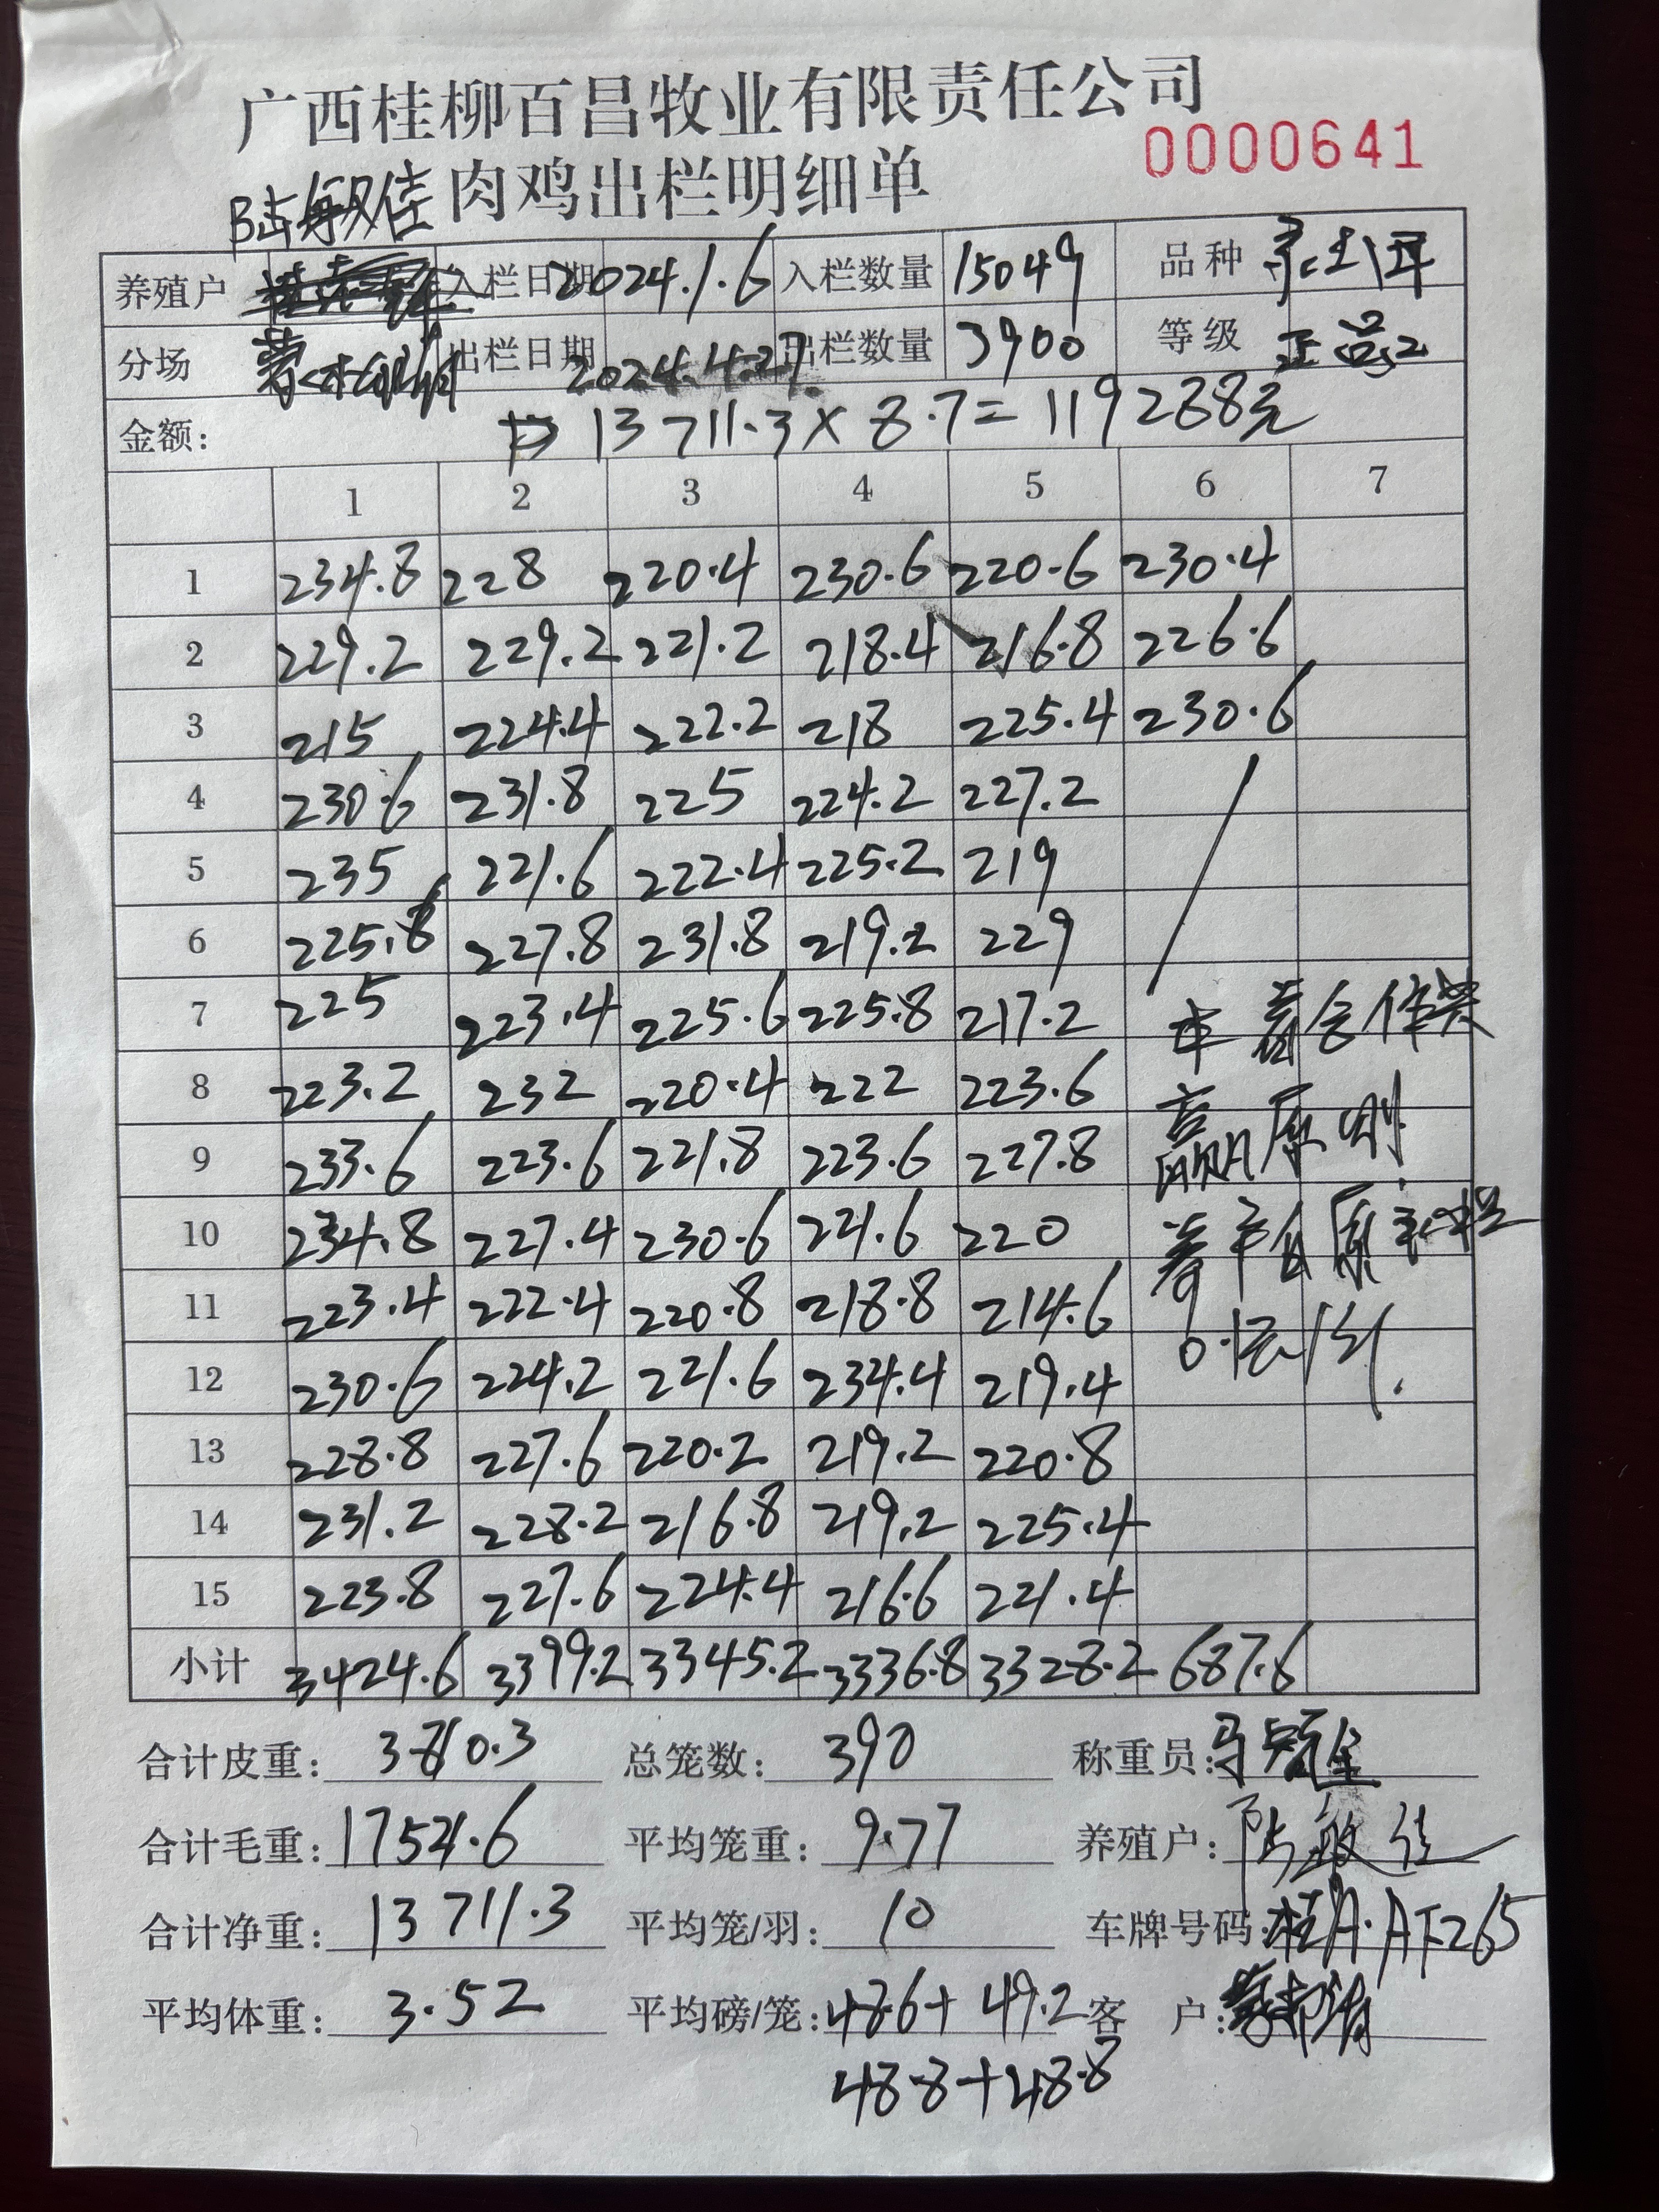 广西桂柳百昌牧业有限责任公司
0000641
陆敏佳 肉鸡出栏明细单
养殖户 入栏日期 2024.1.6 入栏数量 15049 品种
分场 出栏日期 2024.4.27. 出栏数量 3900 等级 正品
金额: 13711.3×8.7=119288元
1 2 3 4 5 6 7
1 234.8 228 220.4 230.6 220.6 230.4
2 229.2 229.2 221.2 218.4 216.8 226.6
3 215 224.4 222.2 218 225.4 230.6
4 230.6 231.8 225 224.2 227.2
5 235 221.6 222.4 225.2 219
6 225.8 227.8 231.8 219.2 229
7 225 223.4 225.6 225.8 217.2
8 223.2 232 220.4 222 223.6
9 233.6 223.6 221.8 223.6 227.8
10 234.8 227.4 230.6 221.6 220
11 223.4 222.4 220.8 218.8 214.6
12 230.6 224.2 221.6 234.4 219.4
13 228.8 227.6 220.2 219.2 220.8
14 231.2 228.2 216.8 219.2 225.4
15 223.8 227.6 224.4 216.6 221.4
本着合作共
赢原则
0.1元/斤.
小计 3424.6 3399.2 3345.2 3336.8 3328.2 687.6
合计皮重: 3810.3 总笼数: 390 称重员:
合计毛重: 17521.6 平均笼重: 9.77 养殖户: 陆敏佳
合计净重: 13711.3 平均笼/羽: 10 车牌号码: 桂A·AF265
平均体重: 3.52 平均磅/笼: 48.6+49.2 客 户:
48.8+48.8